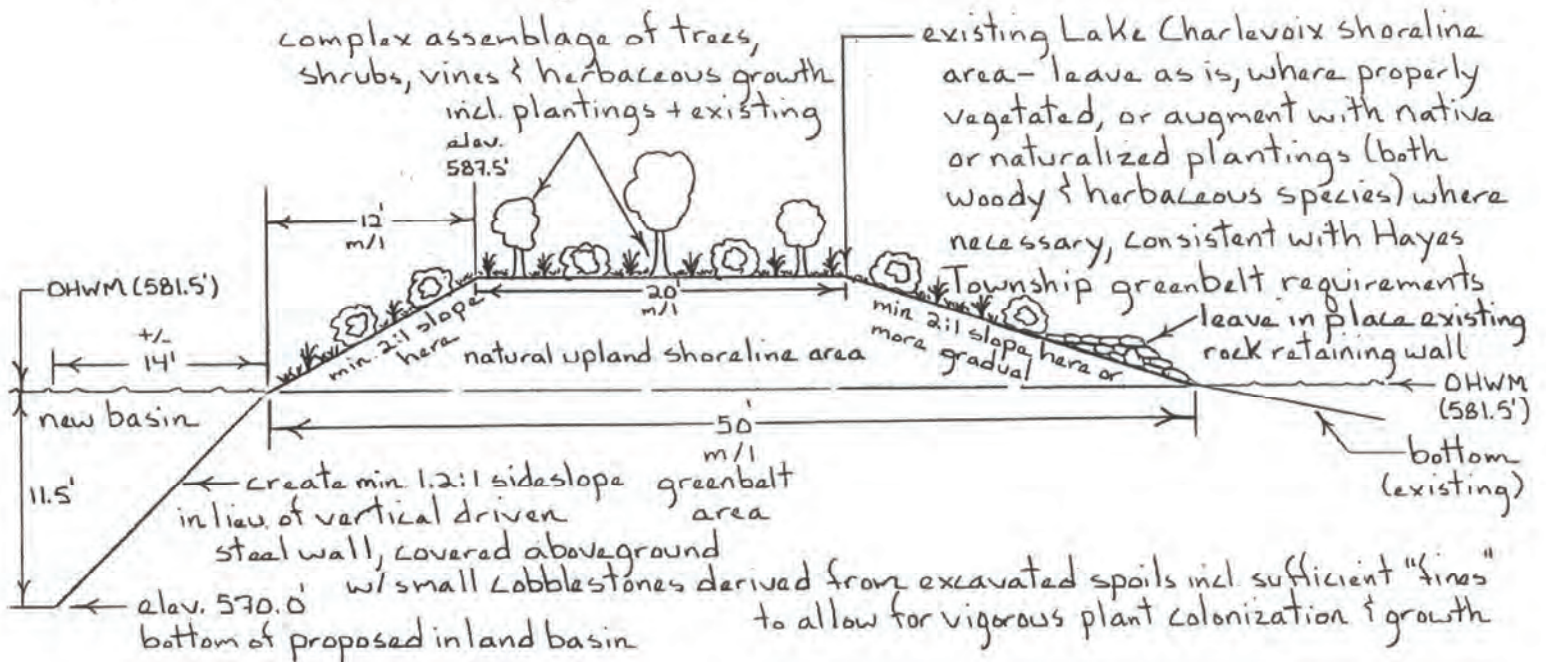 complex assemblage of trees,
shrubs, vines & herbaceous growth
incl. plantings + existing
elev.
587.5'
existing Lake Charlevoix shoreline
area- leave as is, where properly
vegetated, or augment with native
or naturalized plantings (both
woody & herbaceous species) where
necessary, consistent with Hayes
Township greenbelt requirements
leave in place existing
rock retaining wall
12'
m/l
OHWM (581.5')
+/-
14'
min. 2:1 slope
here
20'
m/l
natural upland shoreline area
min 2:1 slope here or
more gradual
OHWM
(581.5')
new basin
50'
m/l
greenbelt
area
bottom
(existing)
11.5'
create min 1.2:1 sideslope
in lieu of vertical driven
steel wall, covered aboveground
w/ small cobblestones derived from excavated spoils incl. sufficient "fines"
to allow for vigorous plant colonization & growth
elev. 570.0'
bottom of proposed inland basin